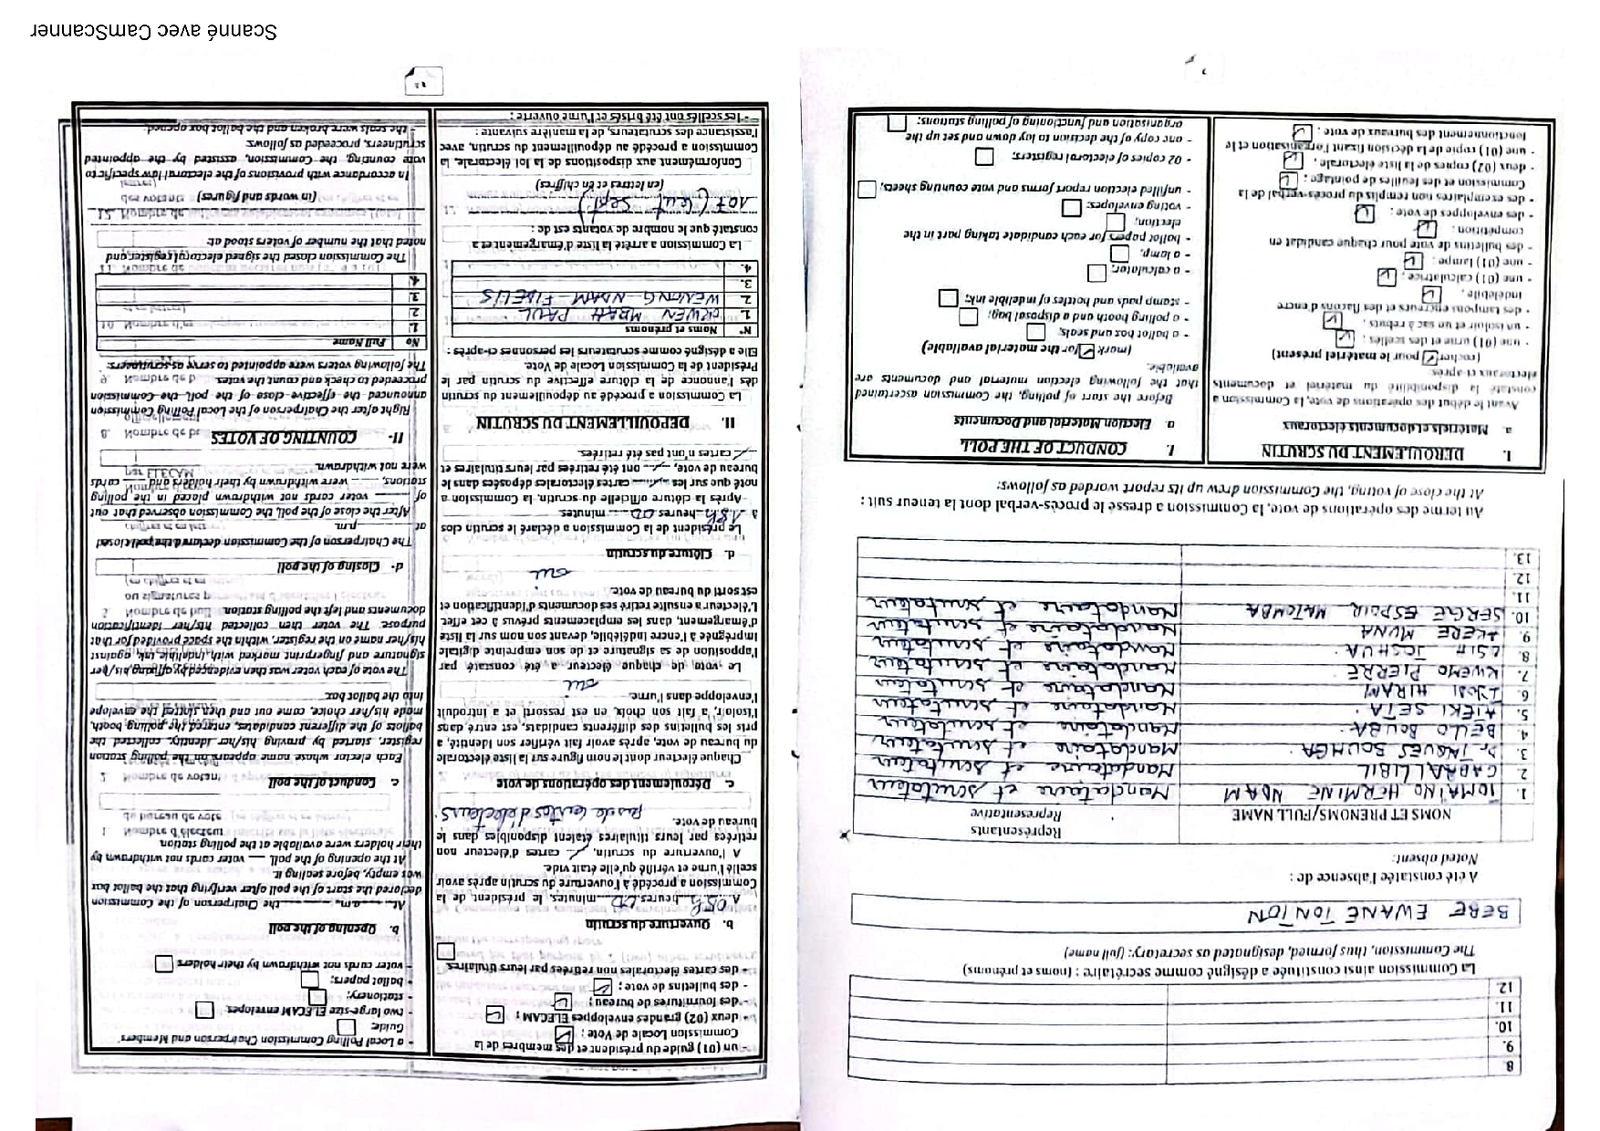 8.
9.
10.
11.
12.
La Commission ainsi constituée a désigné comme secrétaire : (noms et prénoms)
The Commission, thus formed, designated as secretary: (full name)
BEBE EWANE TONTON
A été constatée l'absence de :
Noted absent:
NOMS ET PRENOMS/FULL NAME
Représentants
Representative
1. IDMAÏNO HERMINE NDAM Mandataire et scrutateur
2. CABRAL LIBIL Mandataire et scrutateur
3. Dr JACQUES BOUMGA. Mandataire et scrutateur
4. BELLO BOUBA Mandataire et scrutateur
5. HIEKI SETA. Mandataire et scrutateur
6. IJODI HIRAM Mandataire et scrutateur
7. KWEMO PIERRE Mandataire et scrutateur
8. OSIH JOSHUA. Mandataire et scrutateur
9. AKERE MUNA Mandataire et scrutateur
10. SERGE ESPOIR MATOMBA Mandataire et scrutateur
11.
12.
13.
Au terme des opérations de vote, la Commission a dressé le procès-verbal dont la teneur suit :
At the close of voting, the Commission drew up its report worded as follows:
I. DEROULEMENT DU SCRUTIN
a. Matériels et documents électoraux
Avant le début des opérations de vote, la Commission a
constaté la disponibilité du matériel et documents
électoraux ci-après
(cocher pour le matériel présent)
- une (01) urne et des scellés ;
- un isoloir et un sac à rebuts ;
- des tampons encreurs et des flacons d'encre
indélébile ;
- une (01) calculatrice ;
- une (01) lampe ;
- des bulletins de vote pour chaque candidat en
compétition ;
- des enveloppes de vote ;
- des exemplaires non remplis du procès-verbal de la
Commission et des feuilles de pointage ;
- deux (02) copies de la liste électorale ;
- une (01) copie de la décision fixant l'organisation et le
fonctionnement des bureaux de vote ;
I. CONDUCT OF THE POLL
a. Election Material and Documents
Before the start of polling, the Commission ascertained
that the following election material and documents are
available.
(mark for the material available)
- a ballot box and seals;
- a polling booth and a disposal bag;
- stamp pads and bottles of indelible ink;
- a calculator;
- a lamp,
- ballot papers for each candidate taking part in the
election;
- voting envelopes;
- unfilled election report forms and vote counting sheets;
- 02 copies of electoral registers;
- one copy of the decision to lay down and set up the
organisation and functioning of polling stations;
- un (01) guide du président et des membres de la
Commission Locale de Vote ;
- deux (02) grandes enveloppes ELECAM ;
- des fournitures de bureau ;
- des bulletins de vote ;
- des cartes électorales non retirées par leurs titulaires.
b. Ouverture du scrutin
A 08h heures 00 minutes, le président de la
Commission a procédé à l'ouverture du scrutin après avoir
scellé l'urne et vérifié qu'elle était vide.
A l'ouverture du scrutin, cartes d'électeur non
retirées par leurs titulaires étaient disponibles dans le
bureau de vote.
pas de cartes d'électeurs
c. Déroulement des opérations de vote
Chaque électeur dont le nom figure sur la liste électorale
du bureau de vote, après avoir fait vérifier son identité, a
pris les bulletins des différents candidats, est entré dans
l'isoloir, a fait son choix, en est ressorti et a introduit
l'enveloppe dans l'urne.
oui
Le vote de chaque électeur a été constaté par
l'apposition de sa signature et de son empreinte digitale
imprégnée à l'encre indélébile, devant son nom sur la liste
d'émargement, dans les emplacements prévus à cet effet.
L'électeur a ensuite retiré ses documents d'identification et
est sorti du bureau de vote.
oui
d. Clôture du scrutin
Le président de la Commission a déclaré le scrutin clos
à 18h heures 00 minutes.
Après la clôture officielle du scrutin, la Commission a
noté que sur les cartes électorales déposées dans le
bureau de vote, ont été retirées par leurs titulaires et
cartes n'ont pas été retirées.
II. DEPOUILLEMENT DU SCRUTIN
La Commission a procédé au dépouillement du scrutin
dès l'annonce de la clôture effective du scrutin par le
Président de la Commission Locale de Vote.
Elle a désigné comme scrutateurs les personnes ci-après :
N° Noms et prénoms
1. OKWEN MBAH PAUL
2. WENTING NDAM FIDELIS
3.
4.
La Commission a arrêté la liste d'émargement et a
constaté que le nombre de votants est de :
107 (cent sept)
(en lettres et en chiffres)
Conformément aux dispositions de la loi électorale, la
Commission a procédé au dépouillement du scrutin, avec
l'assistance des scrutateurs, de la manière suivante :
- les scellés ont été brisés et l'urne ouverte ;
- a Local Polling Commission Chairperson and Members'
Guide;
- two large-size ELECAM envelopes;
- stationery;
- ballot papers;
- voter cards not withdrawn by their holders
b. Opening of the poll
At a.m. the Chairperson of the Commission
declared the start of the poll after verifying that the ballot box
was empty, before sealing it.
At the opening of the poll, voter cards not withdrawn by
their holders were available at the polling station.
c. Conduct of the poll
Each elector whose name appears on the polling station
register, started by proving his/her identity, collected the
ballots of the different candidates, entered the polling booth,
made his/her choice, came out and then slotted the envelope
into the ballot box.
The vote of each voter was then evidenced by affixing his/her
signature and fingerprint marked with indelible ink, against
his/her name on the register, within the space provided for that
purpose. The voter then collected his/her identification
documents and left the polling station.
d- Closing of the poll
The Chairperson of the Commission declared the poll closed
at p.m.
After the close of the poll, the Commission observed that out
of voter cards not withdrawn placed in the polling
stations, were withdrawn by their holders and cards
were not withdrawn.
II- COUNTING OF VOTES
Right after the Chairperson of the Local Polling Commission
announced the effective close of the poll, the Commission
proceeded to check and count the votes.
The following voters were appointed to serve as scrutineers:
No Full Name
1.
2.
3.
4.
The Commission closed the signed electoral register, and
noted that the number of voters stood at:
(in words and figures)
In accordance with provisions of the electoral law specific to
vote counting, the Commission, assisted by the appointed
scrutineers, proceeded as follows:
- the seals were broken and the ballot box opened;
Scanné avec CamScanner